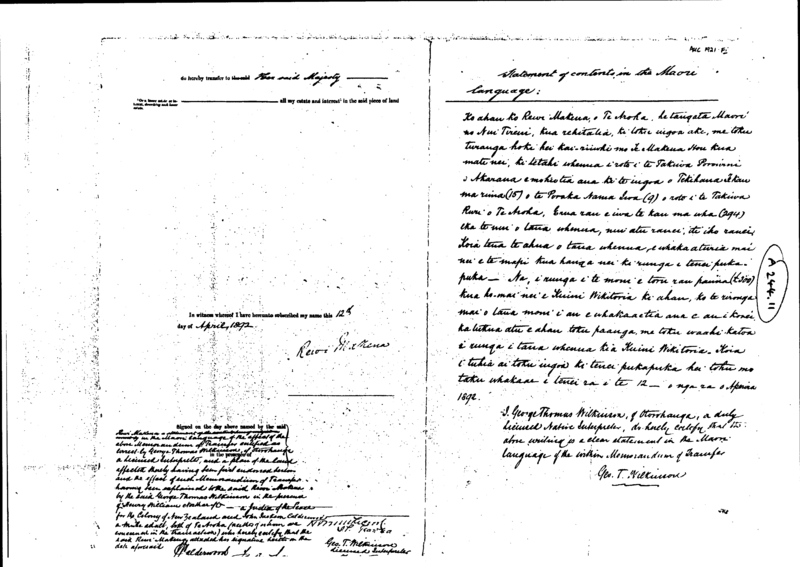 do hereby transfer to the said Her said Majesty
all my estate and interest in the said piece of land
In witness whereof I have hereunto subscribed my name this 12th
day of April, 1892.
Rewi Makena
Signed on the day above named by the said
Rewi Makena a
in the Maori language of the effect of the
above Memorandum of Transfer certified as
correct by George Thomas Wilkinson, of Otorohanga
a Licensed Interpreter, and a plan of the land
affected thereby having been first endorsed hereon
and the effect of such Memorandum of Transfer
having been explained to the said Rewi Makena
by the said George Thomas Wilkinson in the presence
of Henry William a Justice of the Peace
for the Colony of New Zealand and John
a male adult, both of Te Aroha, (neither of whom are
concerned in the transaction) who hereby certify that the
said Rewi Makena attached her signature hereto on the
date aforesaid
Geo. T. Wilkinson
Licensed Interpreter
Statement of contents in the Maori
language:
Ko ahau ko Rewi Makena, o Te Aroha, he tangata Maori
no Nui Tireni, kua rehitatia, ki toku ingoa ake, me toku
turanga hoki hei kai-riiwhi mo Te Makena Hou kua
mate nei, ki tetahi whenua i roto i te Takiwa Porowini
o Akarana e mohiotia ana ki te ingoa o Tekihana Tekau
ma rima (15) o te Poraka Nama Iwa (9) o roto i te Takiwa
Ruri o Te Aroha, Erua rau e iwa te kau ma wha (294)
eka te nui o taua whenua, nui atu ranei, iti iho ranei,
Koia tena te ahua o taua whenua, e whakaaturia mai
nei e te mapi kua hanga nei ki runga i tenei puka-
puka — Na, i runga i te moni e toru rau pauna (£300)
kua ho mai nei e Kuini Wikitoria ki ahau, ko te rironga
mai o taua moni i au e whakaaetia ana e au i konei
ka tukua atu e ahau toku paanga, me toku waahi katoa
i runga i taua whenua ki a Kuini Wikitoria. Koia
i tuhia ai toku ingoa ki tenei pukapuka hei tohu mo
taku whakaae i tenei ra i te 12 — o nga ra o Aperira
1892.
I, George Thomas Wilkinson, of Otorohanga, a duly
licensed Native Interpreter, do hereby certify that the
above writing is a clear statement in the Maori
language of the within Memorandum of Transfer
Geo. T. Wilkinson
A 244.11